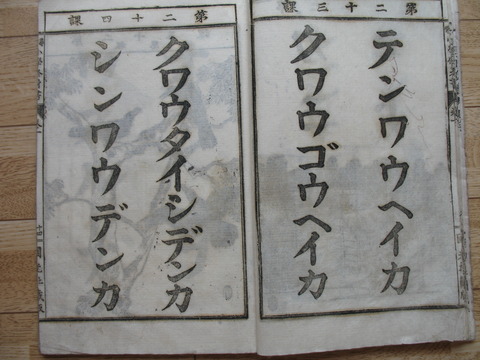 第二十三課
テンワウヘイカ
クワウゴウヘイカ
第二十四課
クワウタイシデンカ
シンワウデンカ